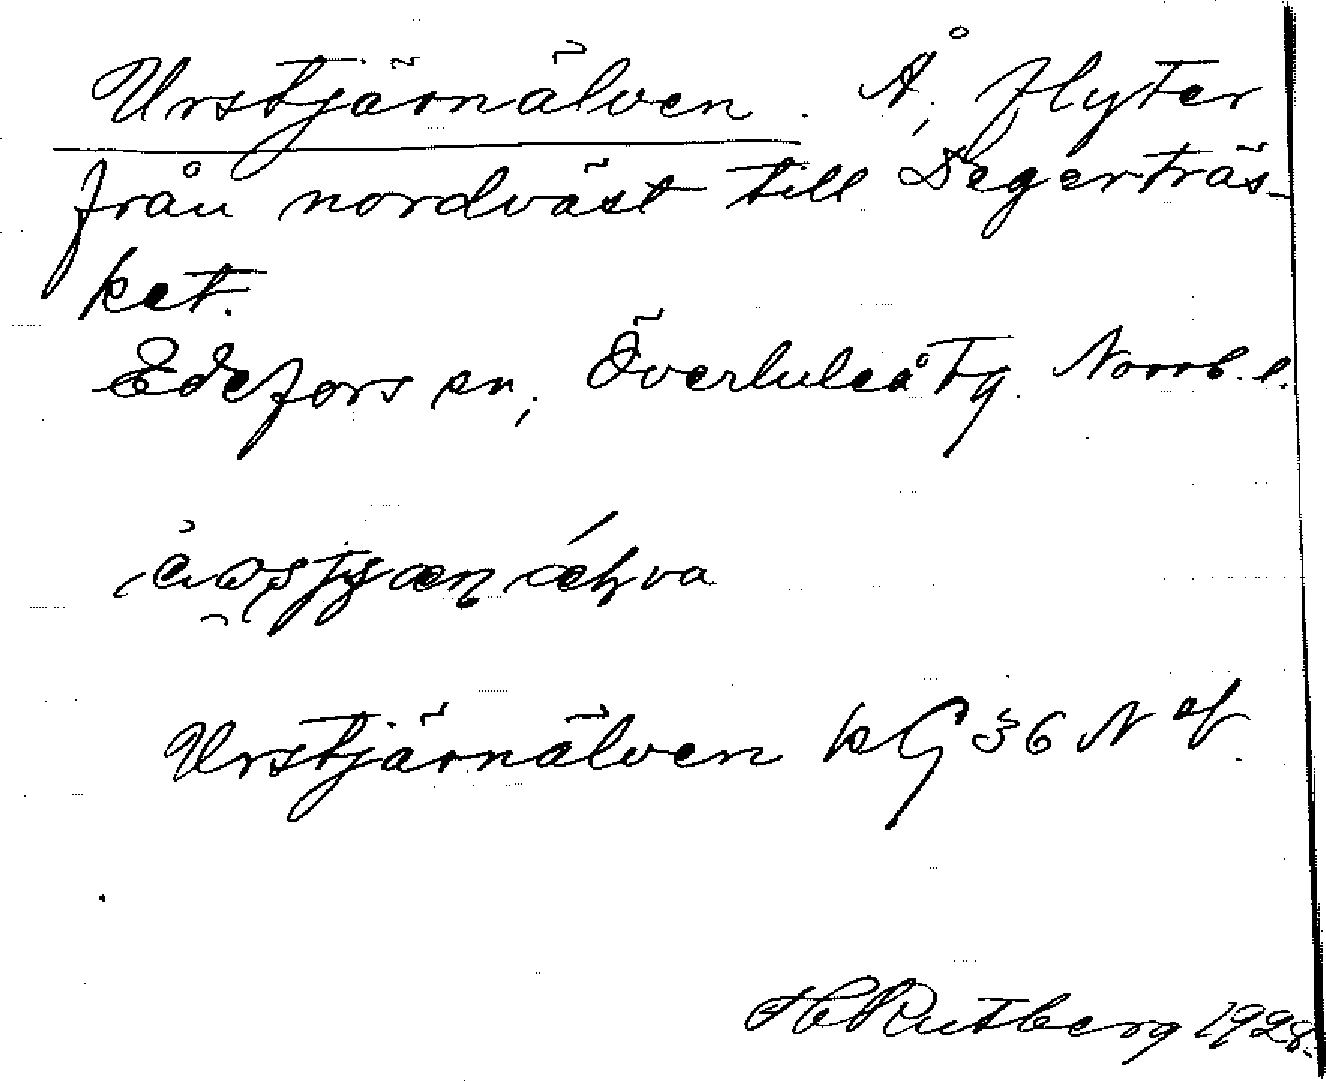 Urstjärnälven. Å, flyter
från nordväst till Degerträs-
ket.
Edefors sn, Överluleå tg. Norrb. l.
Urstjärnälven kG 36 N
H Rutberg 1928.